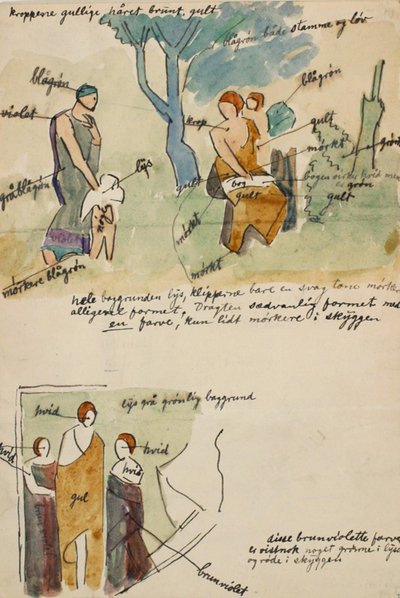 kropperne gullige, håret brunt, gult
blågrøn både stamme og løv
blågrøn
blågrøn
violet
krop
gult
lys
mørkt
gråblågrøn
gult
bog
bogen
hvid men
grøn
gult
gult
violet
mørkt
mørkt
mørkere blågrøn
hele baggrunden lys, klipperne bare en svag tone mørkere
alligevel formet. Dragten sædvanlig formet med
en farve, kun lidt mørkere i skyggen
hvid
lys grå grønlig baggrund
hvid
hvid
hvid
gul
disse brunviolette farver
er vistnok noget grønne i lys
og røde i skyggen
brunviolet